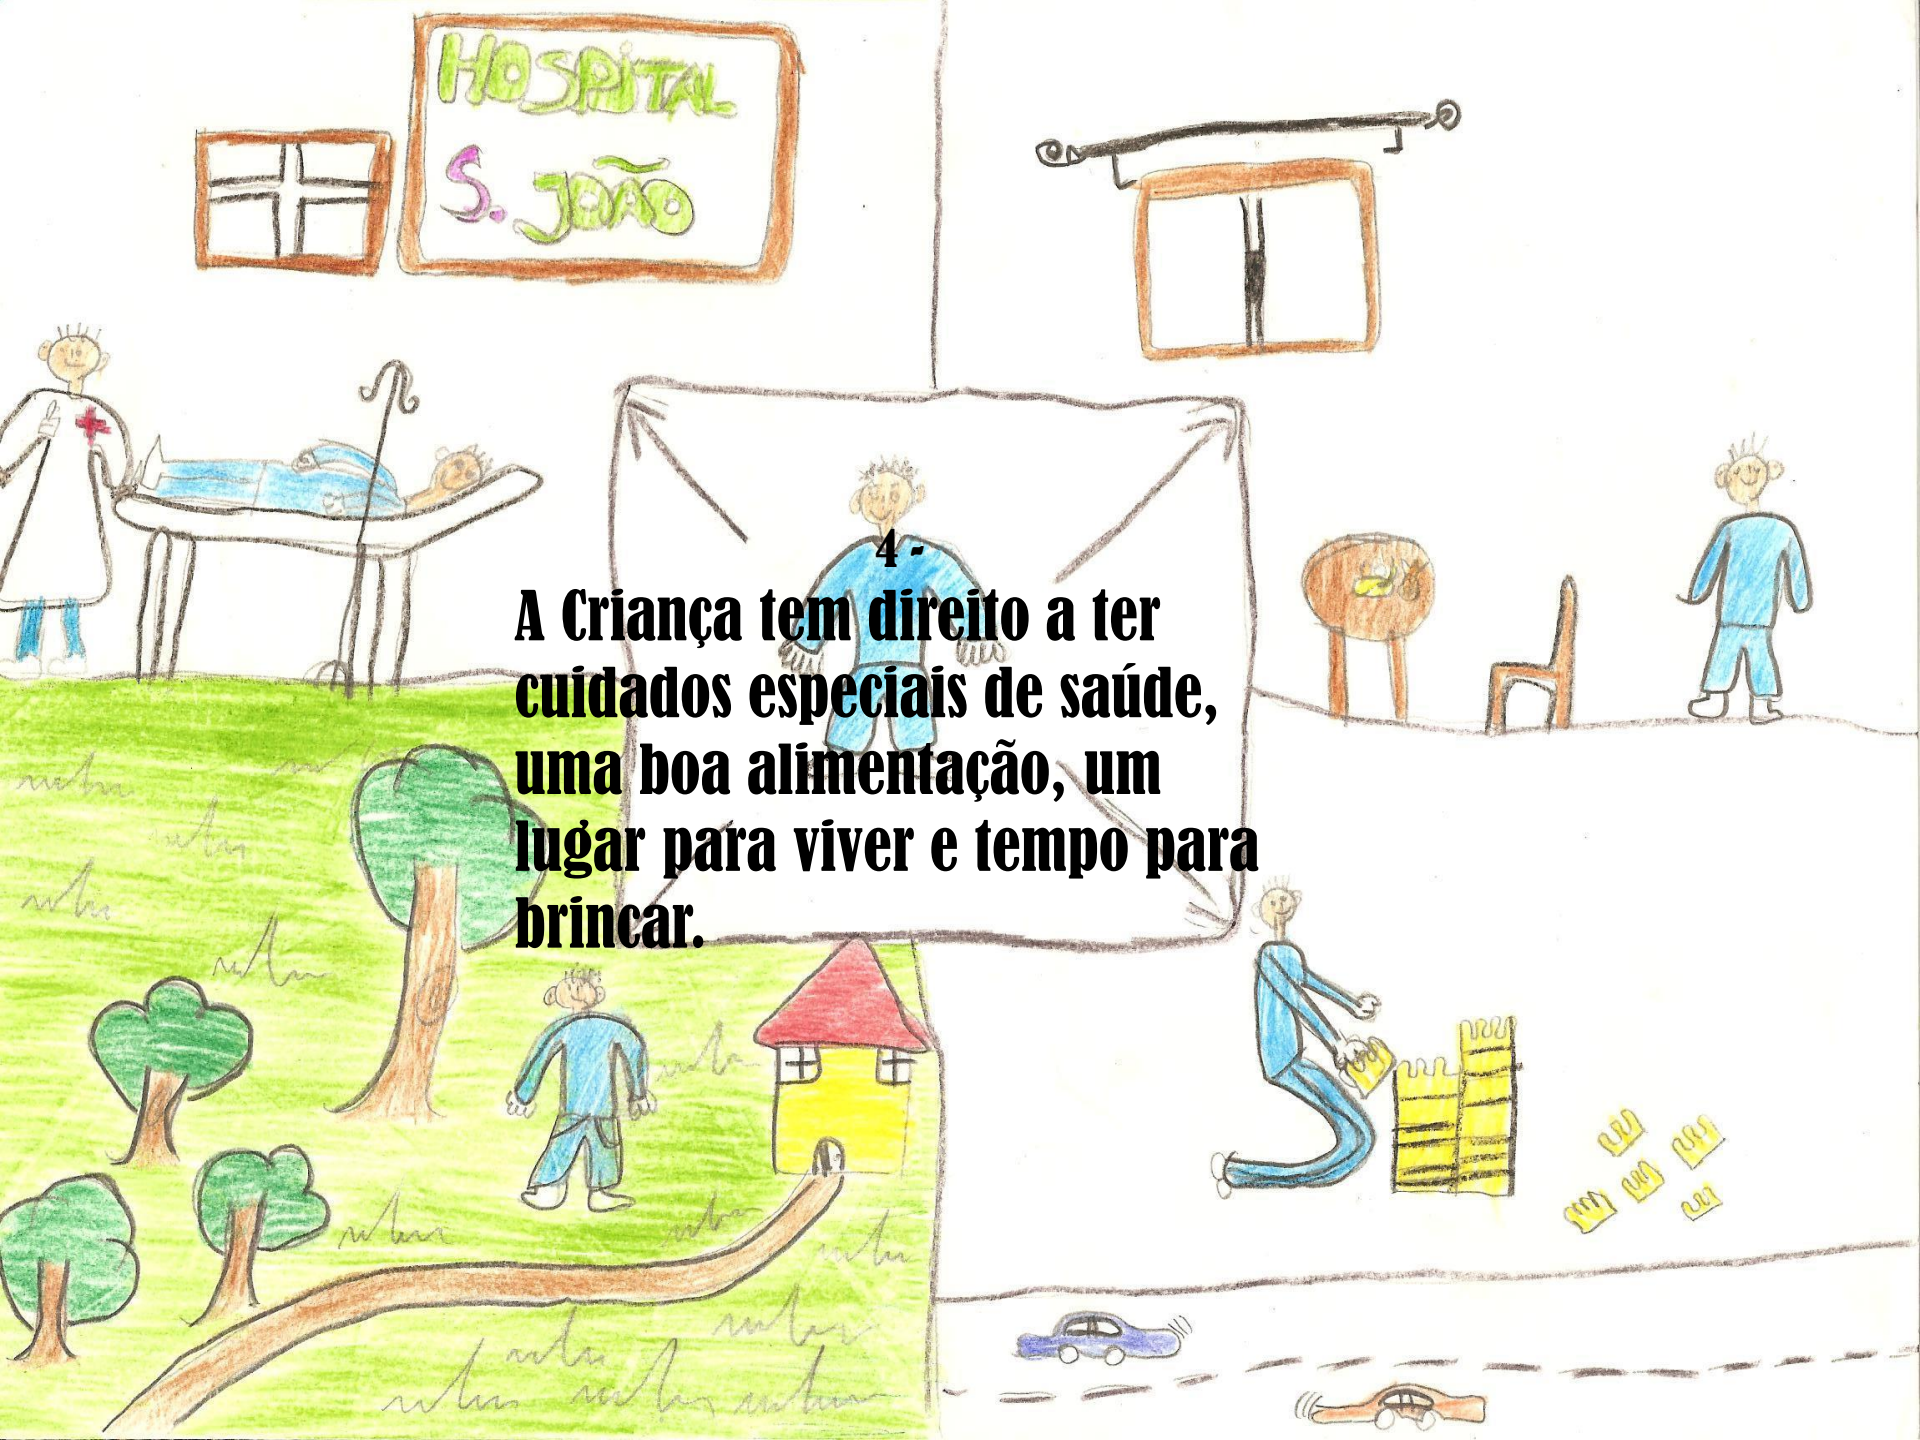 HOSPITAL
S. JOÃO
4 -
A Criança tem direito a ter
cuidados especiais de saúde,
uma boa alimentação, um
lugar para viver e tempo para
brincar.